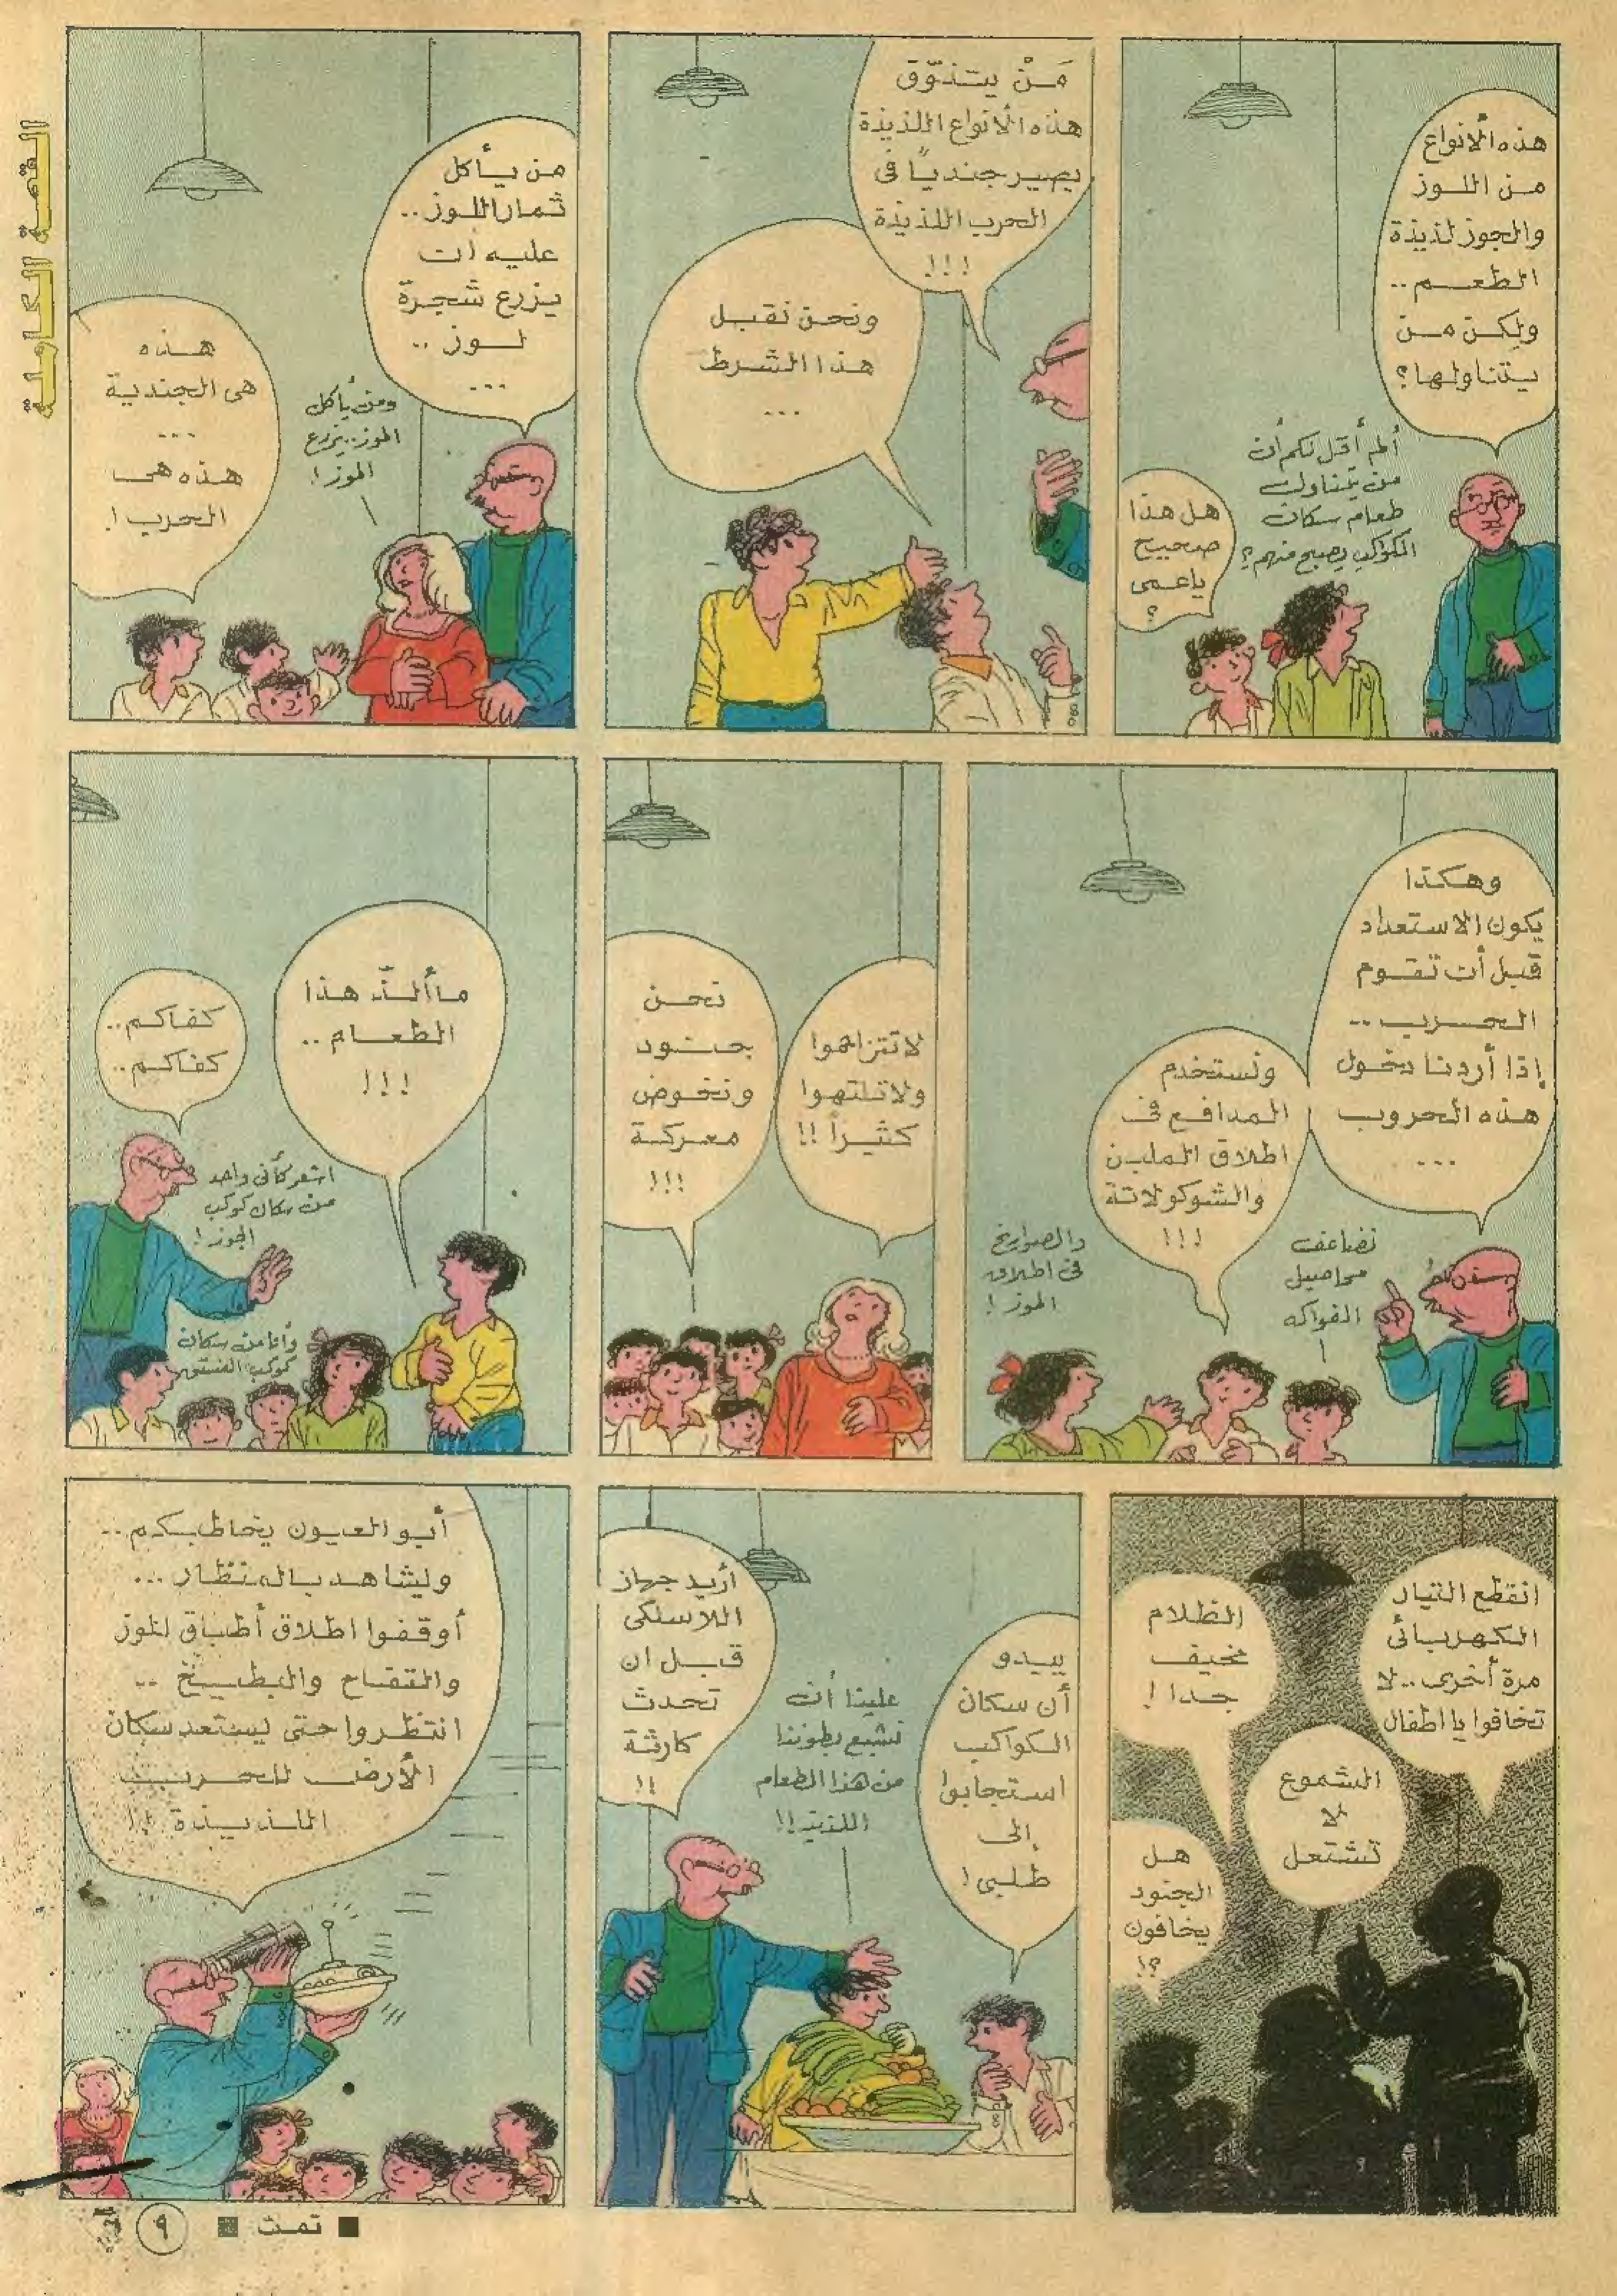 القصة الكاملة
هذه الأنواع
من اللوز
والجوز لذيذة
الطعم ..
ولكن من
يتناولها؟
ألم أقل لكم أن
من يتناول
طعام سكان
الكواكب يصبح منهم؟
هل هذا
صحيح
ياعمى
؟
مَنْ يتذوّق
هذه الأنواع اللذيذة
يصير جنديًا فى
الحرب اللذيذة
!!!
ونحن نقبل
هذا الشرط
...
من يأكل
ثمار اللوز..
عليه أن
يزرع شجرة
لوز ..
...
ومن يأكل
الموز.. يزرع
الموز!
هذه
هى الجندية
...
هذه هى
الحرب!
وهكذا
يكون الاستعداد
قبل أن تقوم
الحرب ..
إذا أردنا دخول
هذه الحروب
...
نضاعف
محاصيل
الفواكه
ونستخدم
المدافع فى
اطلاق الملبن
والشوكولاتة
!!!
والصواريخ
فى اطلاق
الموز!
لا تتزاحموا
ولا تلتهوا
كثيراً !!
نحن
جنود
ونخوض
معركة
!!!
ما ألذّ هذا
الطعام ..
!!!
كفاكم..
كفاكم..
اشعر كأنى واحد
من سكان كوكب
الجوز!
وأنا من سكان
كوكب الفستق
انقطع التيار
الكهربائى
مرة أخرى.. لا
تخافوا يا اطفال
الظلام
مخيف
جدا!
الشموع
لا
تشتعل
هل
الجنود
يخافون
؟!
يبدو
أن سكان
الكواكب
استجابوا
إلى
طلبى!
علينا أن
نشبع بطوننا
من هذا الطعام
اللذيذ!!
أريد جهاز
اللاسلكى
قبل ان
تحدث
كارثة
!!
أبو العيون يخاطبكم..
وليشاهد بالمنظار ...
أوقفوا اطلاق أطباق اللوز
والتفاح والبطيخ ..
انتظروا حتى يستعد سكان
الأرض للحرب
اللذيذة !!
تمت
٩